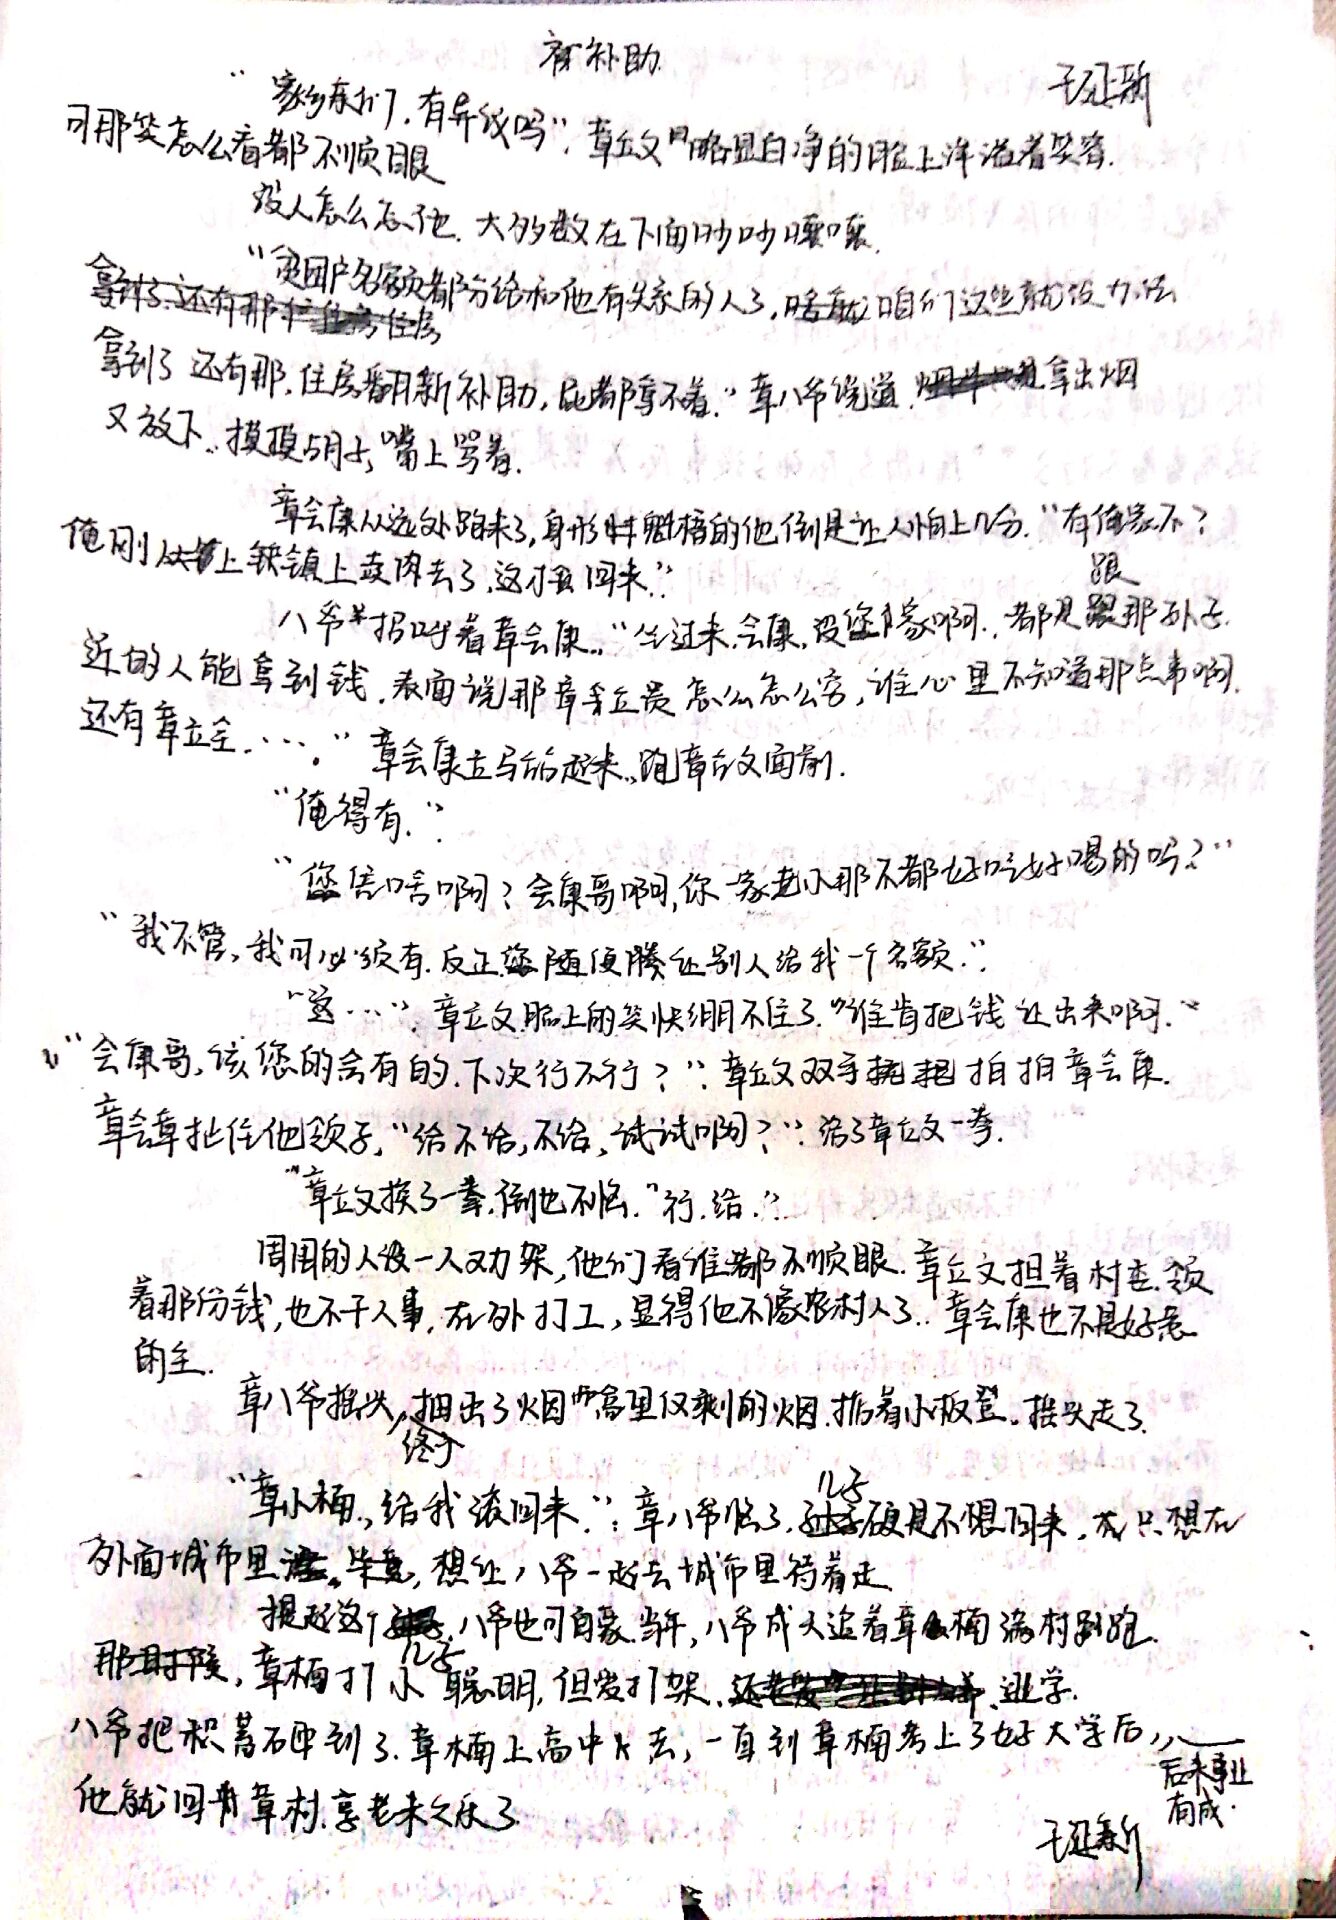 补助
“家乡亲们，有异议吗”，章立文略显白净的脸上洋溢着笑容.
可那笑怎么看都不顺眼
没人怎么怎他. 大多数在下面吵吵嚷嚷.
“贫困户名额都分给和他有关家的人了, 咱们这些就没办法
拿到了 还有那. 住房翻新补助, 咱都拿不着.”章八爷说道. 拿出烟
又放下., 摸摸胡子, 嘴上骂着.
章会康从远处跑来了, 身形魁梧的他倒是让人怕上几分. “有俺家不?
俺刚从镇上卖肉去了, 这才回来.”
八爷招呼着章会康.“坐过来. 会康, 没您家啊., 都是跟那孙子.
近的人能拿到钱. 表面说那章立贵怎么怎么穷, 谁心里不知道那点事啊.
还有章立全. …. ” 章会康立马站起来., 跑章立文面前.
“俺得有.”
“您信啥啊? 会康哥啊, 你一家老小那不都好吃好喝的吗?”
“我不管, 我可必须有. 反正您随便让别人给我一个名额.”
“这…”. 章立文脸上的笑快绷不住了.“谁肯把钱让出来啊.”
“会康哥, 该您的会有的. 下次行不行?”. 章立文双手拍拍章会康.
章会章扯住他领子, “给不给, 不给, 试试啊?”. 给了章立文一拳.
“章立文挨了一拳. 倒也不恼.“行. 给.”
周围的人没一人劝架, 他们看谁都不顺眼. 章立文担着村支. 领
着那份钱, 也不干人事, 在外打工, 显得他不像农村人了.. 章会康也不是好惹
的主.
章八爷摇头, 终于抽出了烟窝里仅剩的烟. 拈着小板登. 摇头走了.
“章小楠., 给我滚回来.”: 章八爷恼了. 儿子硬是不想回来, 只想在
外面城市里. 想让八爷一起去城市里待着走.
提起这个儿子, 八爷也可自豪. 当年, 八爷成天追着章楠满村跑.
那时候, 章楠打小聪明, 但爱打架. 逃学.
八爷把积蓄砸到了. 章楠上高中去, 一直到章楠考上了好大学后, 后来事业有成.
他就回章村. 享老来之乐了.